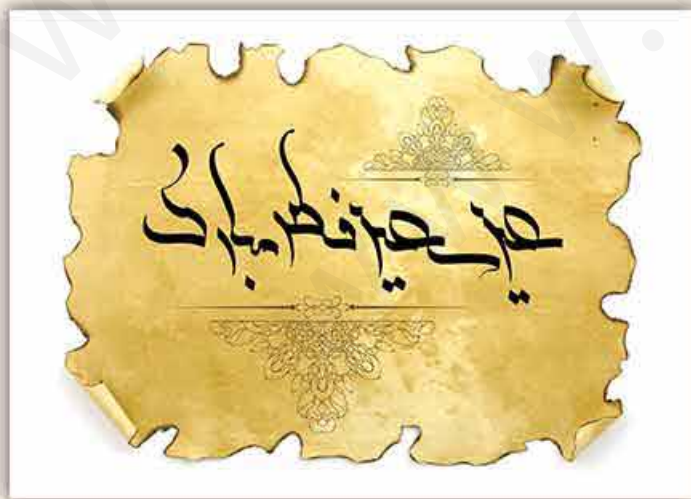 عید سعید فطر مبارک